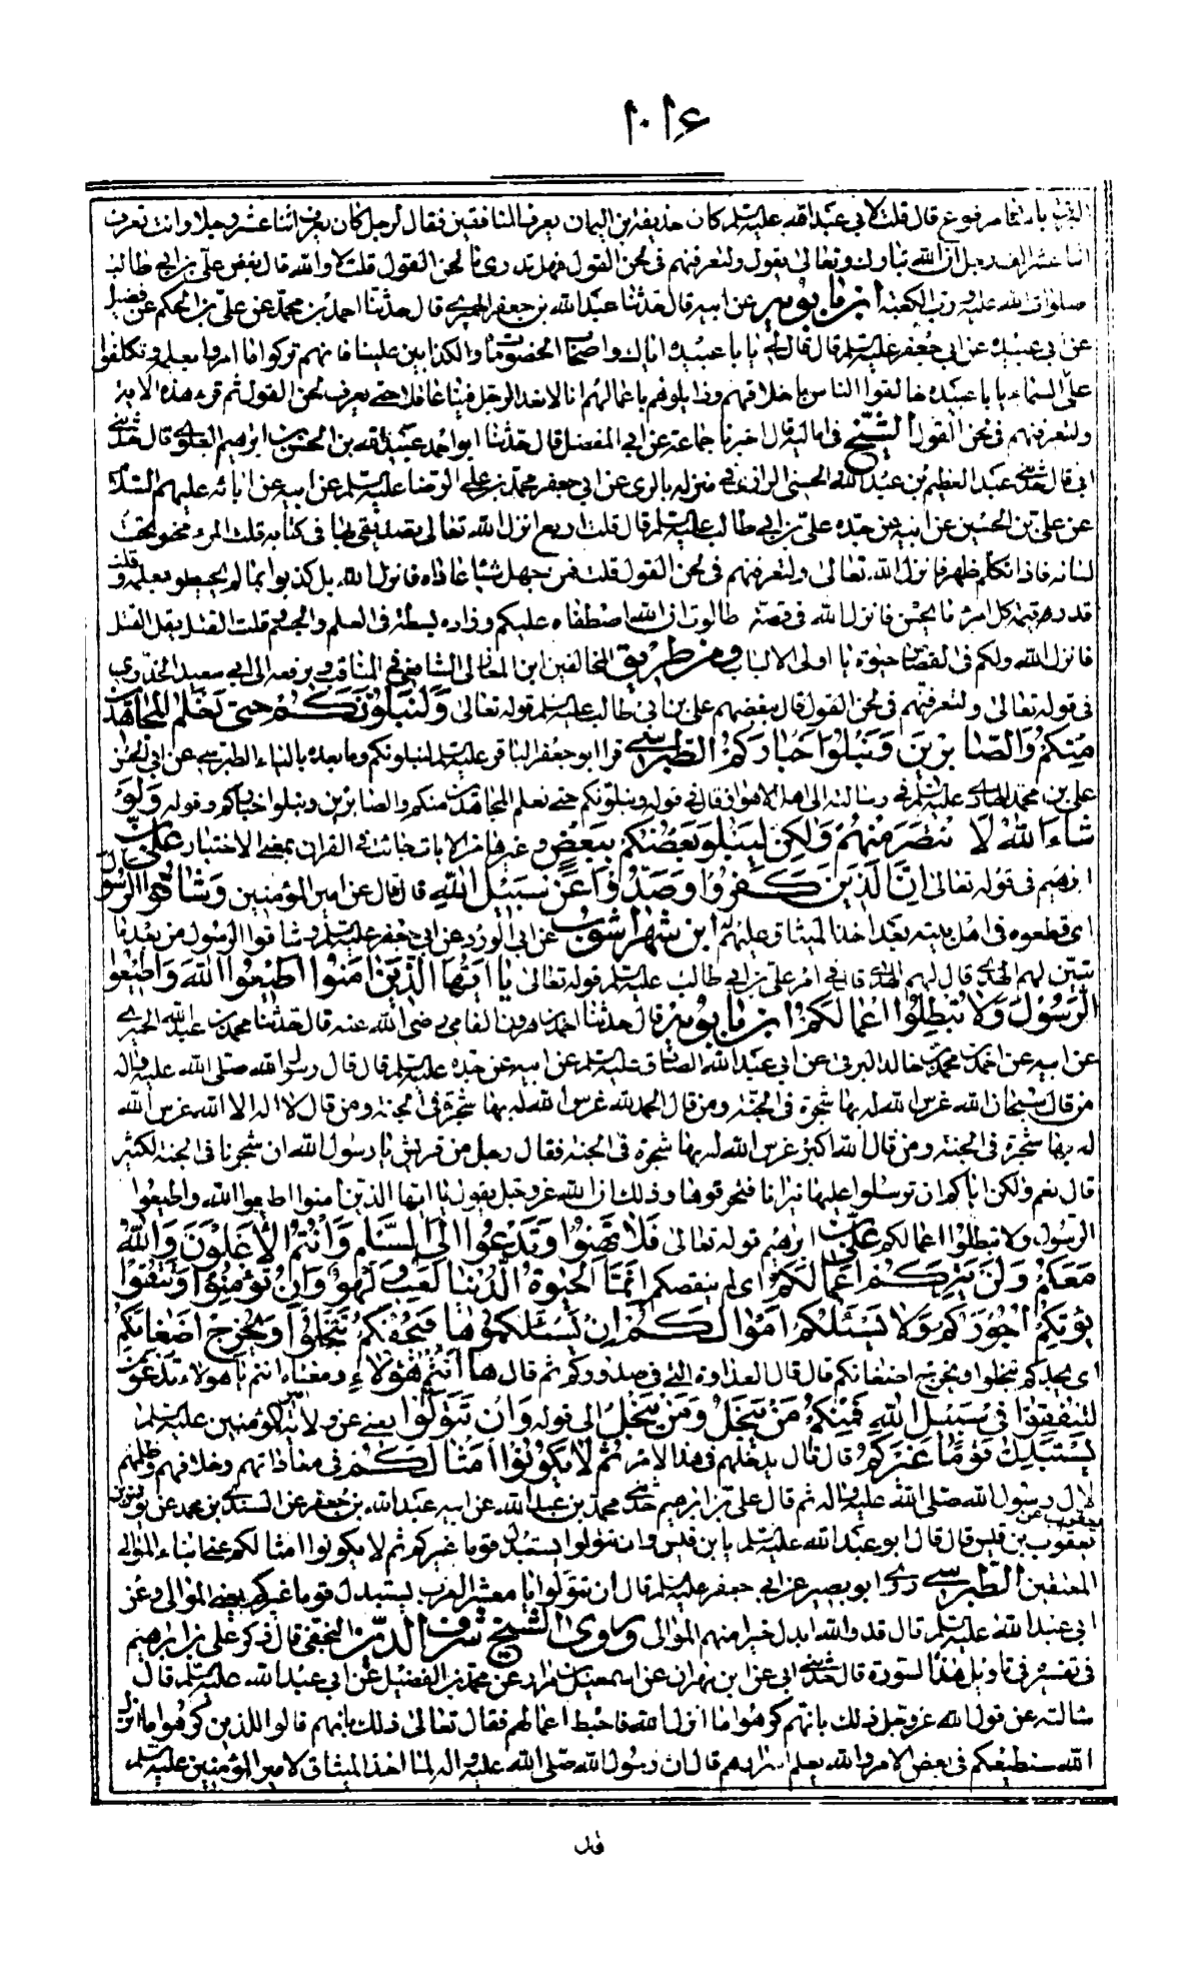 ١٠١٦
باسناد مرفوع قال قلت لابى عبد الله عليه السلم كان حذيفة بن اليمان يعرف المنافقين فقال رجل كان يعرف اثنا عشر رجلا وانت تعرف
اثنا عشر الف رجل ان الله تبارك وتعالى يقول ولتعرفنهم فى لحن القول فهل تدرى ما لحن القول قلت لا والله قال بغض على بن ابى طالب
صلوات الله عليه ورب الكعبة ابن بابويه عن ابيه قال حدثنا عبد الله بن جعفر الحميرى قال حدثنا احمد بن محمد عن على بن الحكم عن فضيل
عن ابى عبيدة عن ابى جعفر عليه السلم قال قال لى يا با عبيدة اياك واصحاب الخصومات والكذابين علينا فانهم تركوا ما امروا بعلمه وتكلفوا
على السماء يا با عبيدة خالقوا الناس باخلاقهم وزايلوهم باعمالهم انا لا نعد الرجل فينا عاقلا حتى يعرف لحن القول ثم قرء هذه الاية
ولتعرفنهم فى لحن القول الشيخ فى اماليه قال اخبرنا جماعة عن ابى المفضل قال حدثنا ابو احمد عبيد الله بن الحسين بن ابرهيم العلوى قال حدثنى
ابى قال حدثنى عبد العظيم بن عبد الله الحسنى الرازى فى منزله بالرى عن ابى جعفر محمد بن على الرضا عليه السلم عن ابيه عن ابائه عليهم السلام
عن على بن الحسين عن ابيه عن جده على بن ابى طالب عليه السلم قال قلت اربع انزل الله تعالى تصديقى بها فى كتابه قلت المرء مخبو تحت
لسانه فاذا تكلم ظهر فانزل الله تعالى ولتعرفنهم فى لحن القول قلت فمن جهل شيئا عاداه فانزل الله بل كذبوا بما لم يحيطوا بعلمه وقلت
قدر قيمة كل امرء ما يحسن فانزل الله فى قصة طالوت ان الله اصطفاه عليكم وزاده بسطة فى العلم والجسم قلت القتل يقل القتل
فانزل الله ولكم فى القصاص حيوة يا اولى الالباب ومن طريق المخالفين ابن المغازلى الشافعى فى المناقب يرفعه الى ابى سعيد الخدرى
فى قوله تعالى ولتعرفنهم فى لحن القول قال ببغضهم على بن ابى طالب عليه السلم قوله تعالى ولنبلونكم حتى نعلم المجاهدين
منكم والصابرين ونبلوا اخباركم الطبرسى قرا ابو جعفر الباقر عليه السلم ليبلونكم وما بعده بالياء الطبرسى عن ابى الحسن
على بن محمد الهادى عليه السلم فى رسالته الى اهل الاهواز قال فى قوله ولنبلونكم حتى نعلم المجاهدين منكم والصابرين ونبلوا اخباركم وقوله ولو
شاء الله لانتصر منهم ولكن ليبلو بعضكم ببعض وغيرها من الايات جائت فى القران بمعنى الاختبار على بن
ابرهيم فى قوله تعالى ان الذين كفروا وصدوا عن سبيل الله قال قال عن امير المؤمنين وشاقوا الرسول
اى قطعوه فى اهل بيته بعد اخذ الميثاق عليهم ابن شهراشوب عن ابى الورد عن ابى جعفر عليه السلم وشاقوا الرسول من بعد ما
تبين لهم الهدى قال لهم الهدى فى امر على بن ابى طالب عليه السلم قوله تعالى يا ايها الذين امنوا اطيعوا الله واطيعوا
الرسول ولا تبطلوا اعمالكم ابن بابويه قال حدثنا احمد بن هرون الفامى رضى الله عنه قال حدثنا محمد بن عبد الله الحميرى
عن ابيه عن احمد بن محمد بن خالد البرقى عن ابى عبد الله الصادق عليه السلم عن ابيه عن جده عليه السلم قال قال رسول الله صلى الله عليه واله
من قال سبحان الله غرس الله له بها شجرة فى الجنة ومن قال الحمد لله غرس الله له بها شجرة فى الجنة ومن قال لا اله الا الله غرس الله
له بها شجرة فى الجنة ومن قال الله اكبر غرس الله له بها شجرة فى الجنة فقال رجل من قريش يا رسول الله ان شجرنا فى الجنة لكثير
قال نعم ولكن اياكم ان ترسلوا عليها نيرانا فتحرقوها وذلك ان الله عز وجل يقول يا ايها الذين امنوا اطيعوا الله واطيعوا
الرسول ولا تبطلوا اعمالكم على بن ابرهيم قوله تعالى فلا تهنوا وتدعوا الى السلم وانتم الاعلون والله
معكم ولن يتركم اعمالكم اى لم ينقصكم انما الحيوة الدنيا لعب ولهو وان تؤمنوا وتتقوا
يؤتكم اجوركم ولا يسئلكم اموالكم ان يسئلكموها فيحفكم تبخلوا ويخرج اضغانكم
اى يجدكم تبخلوا ويخرج اضغانكم قال قال العداوة التى فى صدوركم ثم قال ها انتم هؤلاء ومعناه انتم يا هولاء تدعون
لتنفقوا فى سبيل الله فمنكم من يبخل ومن يبخل الى قوله وان تتولوا يعنى عن ولاية امير المؤمنين عليه السلم
يستبدل قوما غيركم قال قال يدخلهم فى هذا الامر ثم لا يكونوا امثالكم فى معاداتهم وخلافهم وظلمهم
لال رسول الله صلى الله عليه واله ثم قال على بن ابرهيم حدثنى محمد بن عبد الله عن ابيه عبد الله بن جعفر عن السندى بن محمد عن يونس بن
يعقوب عن
يعقوب بن قيس قال قال ابو عبد الله عليه السلم يا بن قيس وان تتولوا يستبدل قوما غيركم ثم لا يكونوا امثالكم عنى ابناء الموالى
المعتقين الطبرسى روى ابو بصير عن ابى جعفر عليه السلم قال ان تتولوا يا معشر العرب يستبدل قوما غيركم يعنى الموالى وعن
ابى عبد الله عليه السلم قال قد والله ابدل خيرا منهم الموالى وروى الشيخ شرف الدين النجفى قال ذكر على بن ابرهيم
فى تفسيره فى تاويل هذه السورة قال حدثنى ابى عن ابن مهران عن اسمعيل بن مرار عن محمد بن الفضيل عن ابى عبد الله عليه السلم قال
سالته عن قول الله عز وجل ذلك بانهم كرهوا ما انزل الله فاحبط اعمالهم فقال تعالى ذلك بانهم قالوا للذين كرهوا ما نزل
الله سنطيعكم فى بعض الامر والله يعلم اسرارهم قال ان رسول الله صلى الله عليه واله لما اخذ الميثاق لامير المؤمنين عليه السلم
قال